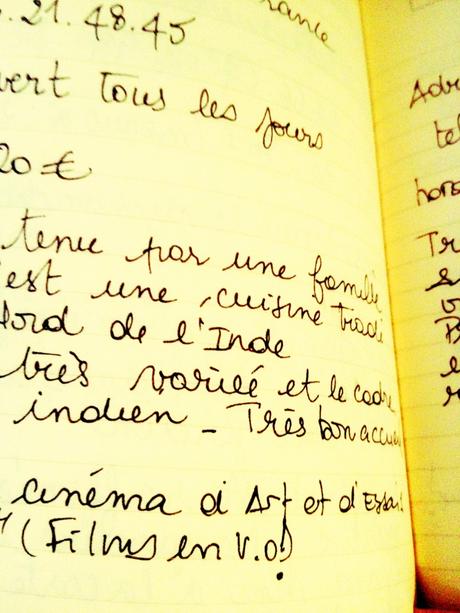 .21.48.45
rance
vert tous les jours
20€
tenu par une famille
'est une cuisine tradi
Nord de l'Inde
très variée et le cadre
indien - Très bon accue
cinéma d'Art et d'Essai
(Films en V.O!)
Adre
tel
hors
Tr